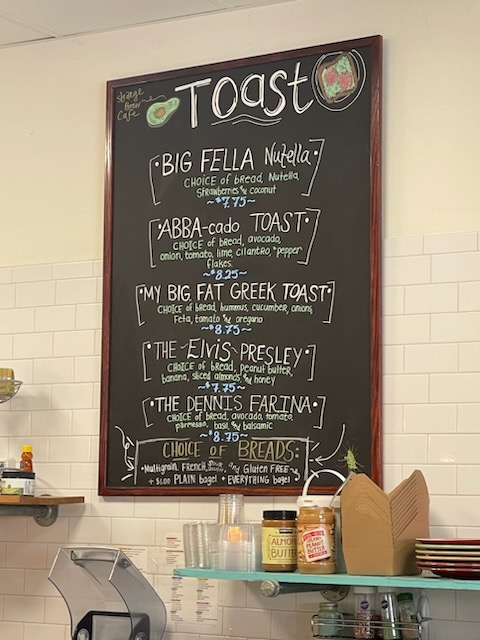 Strange
Brew
Cafe
TOast
•BIG FELLA Nutella•
CHOICE of bread, Nutella,
Strawberries and coconut
~$7.75~
•ABBA-cado TOAST•
CHOICE of bread, avocado,
onion, tomato, lime, cilantro, *pepper
flakes.
~$8.25~
•MY BIG FAT GREEK TOAST•
CHOICE of bread, hummus, cucumber, onions,
Feta, tomato and oregano
~$8.75~
•THE ELVIS PRESLEY•
CHOICE of bread, peanut butter,
banana, sliced almonds and honey
~$7.75~
•THE DENNIS FARINA•
CHOICE of bread, avocado, tomato,
parmesan, basil, and balsamic
~$8.75~
CHOICE of BREADS:
•Multigrain, FRENCH, and Gluten FREE
+ $1.00 PLAIN bagel + EVERYTHING bagel
ALMOND
BUTTER
CREAMY
PEANUT
BUTTER